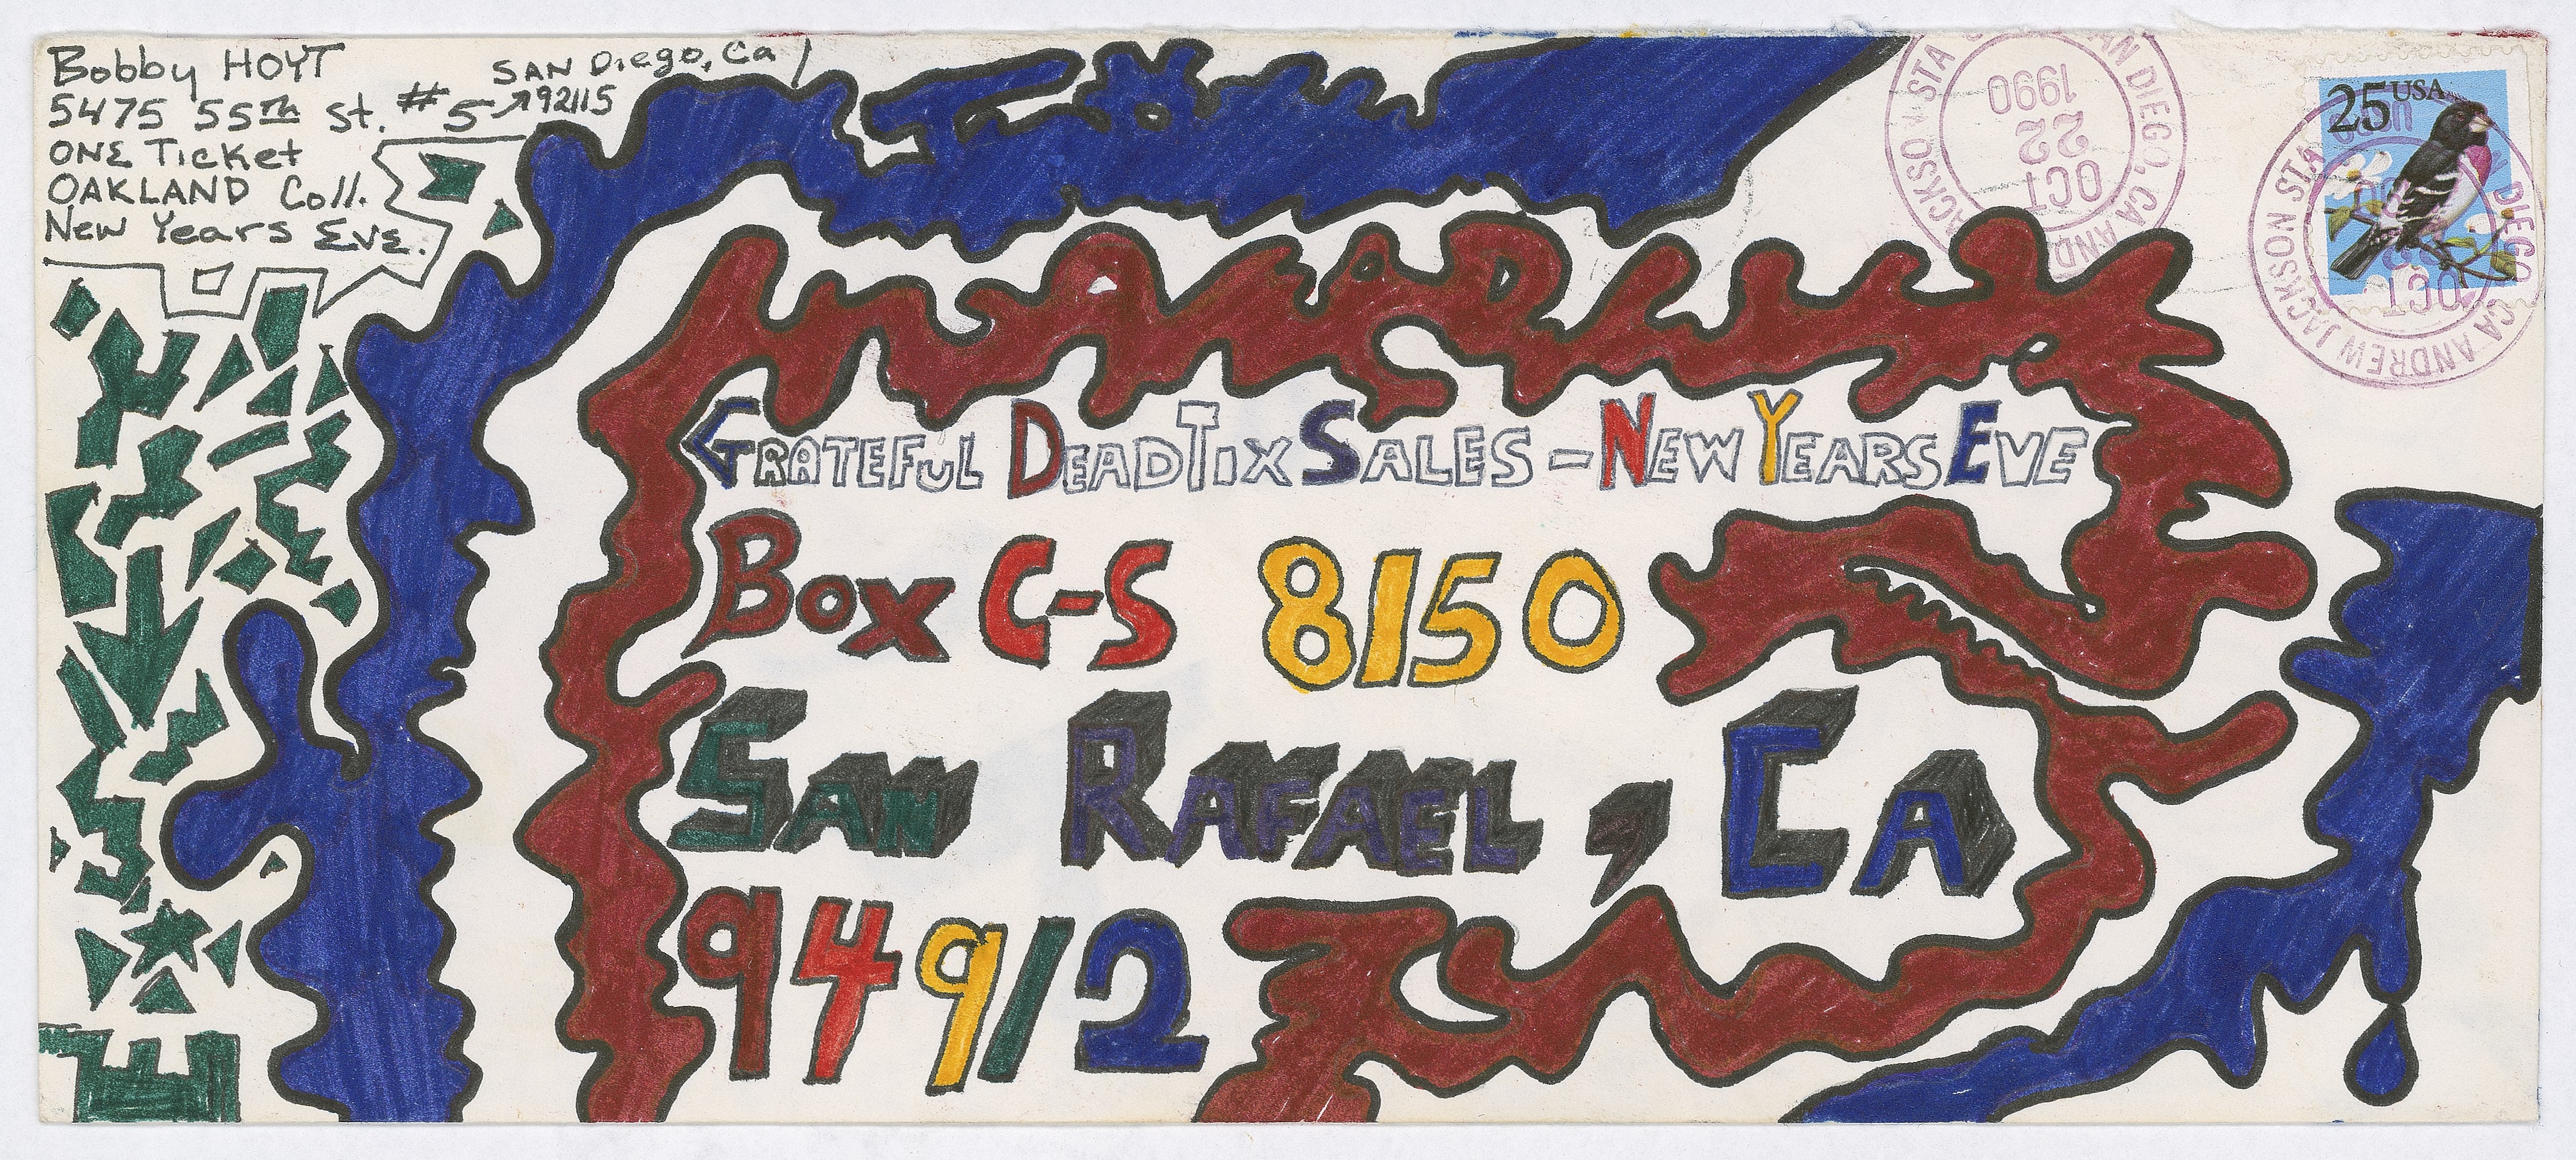 Bobby HOYT
5475 55th St. #5
SAN Diego, Ca
92115
ONE Ticket
OAKLAND Coll.
New Years Eve.
GRATEFUL DEAD TIX SALES - NEW YEARS EVE
BOX C-S 8150
SAN RAFAEL, CA
94912
25 USA
SAN DIEGO, CA ANDREW JACKSON STA
OCT
22
1990
DIEGO CA ANDREW JACKSON STA
OCT